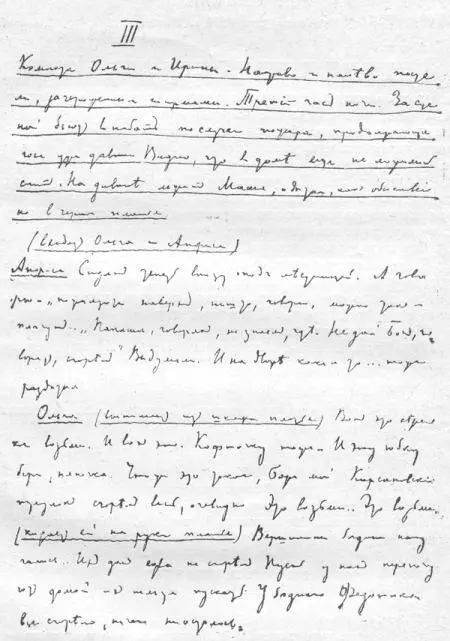 III
Комната Ольги и Ирины. Направо и налѣво посте-
ли, загороженныя ширмами. Третій часъ ночи. За сце-
ной бьютъ въ набатъ по случаю пожара,
уже давно. Видно, что въ домѣ еще не ложились
спать. На диванѣ лежитъ Маша, одѣтая, какъ обыкновен-
но въ черное платье
(входятъ Ольга и Анфиса)
Анфиса Сидятъ теперь внизу подъ лѣстницей. А гово-
рю — „пожалуйте наверхъ, нешто, говорю, можно такъ —
плачутъ.. „Папаша, говорятъ, не знаемъ, гдѣ. Не дай Богъ, го-
ворятъ, сгорѣлъ" Выдумали. И на дворѣ какіе-то... тоже
раздѣтые
Ольга (вынимаетъ изъ шкапа платья) Вотъ это сѣрень-
кое возьми. И вотъ это. Кофточку тоже. И эту юбку
бери, нянечка. Что же это такое, Боже мой Кирсановскій
переулокъ сгорѣлъ весь, очевидно Это возьми.. Это возьми.
(кидаетъ ей на руки платье) Вершинины бѣдные напу-
гались.. Ихъ домъ едва не сгорѣлъ Пусть у насъ переночу-
ютъ домой ихъ нельзя пускать У бѣднаго Федотика
все сгорѣло, ничего не осталось